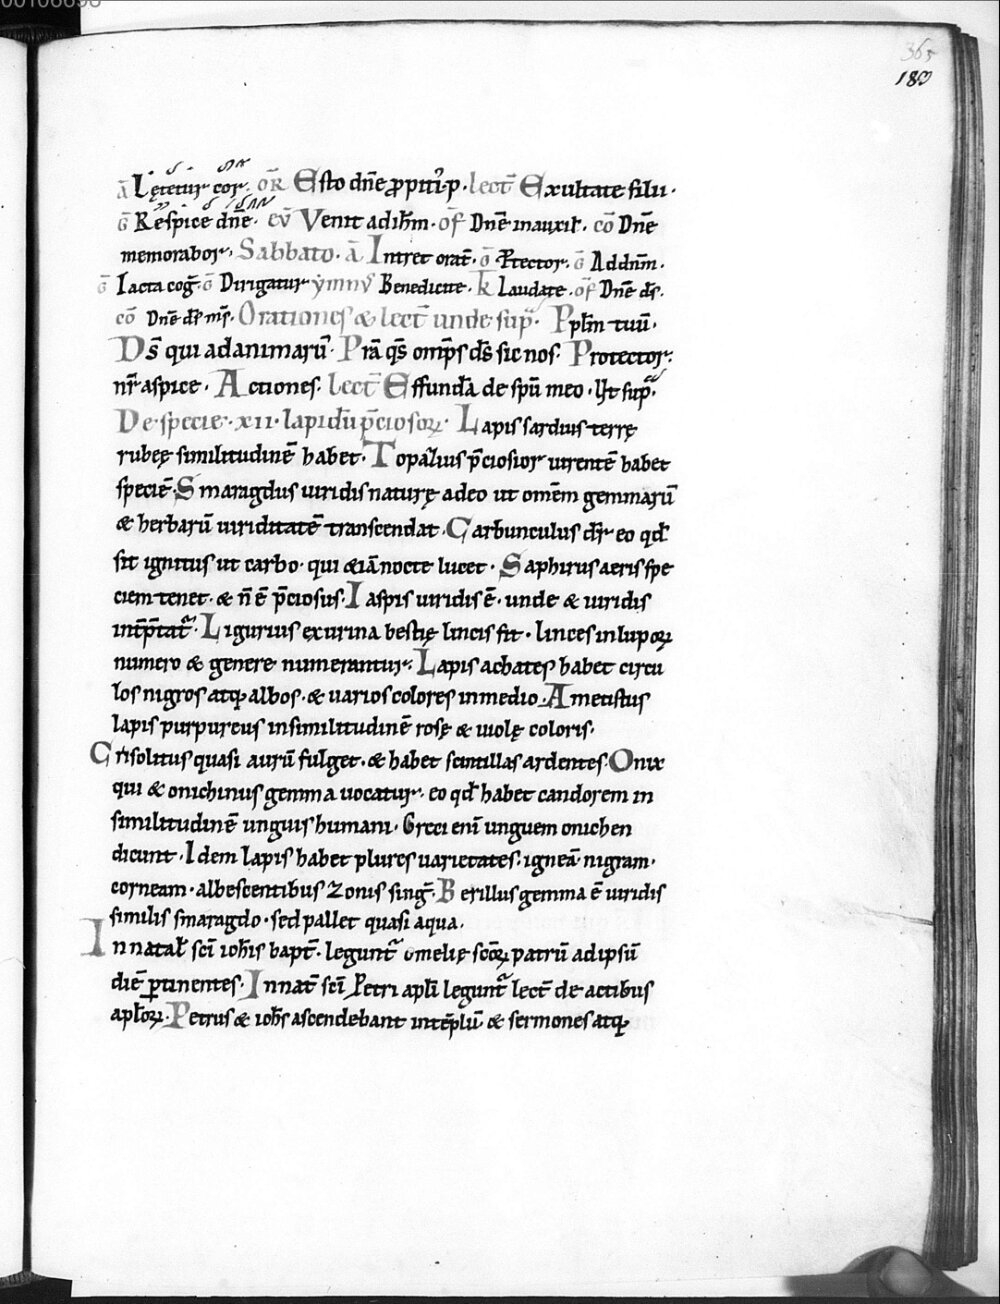 00106696
365
183
ā Lętetur cor. oR̄ Esto dn̄e ꝓpiti᷒ p. lect̄ Exultate filii.
ḡ Respice dn̄e. ev̄ Venit ad ih̄m. of̄ Dn̄e in auxił. cō Dn̄e
memorabor. Sabbato. ā Intret orat̄. ḡ Ptector. ḡ Ad dn̄m.
ḡ Iacta cog̅. ḡ Dirigatur ymnꝰ Benedicite. k̄ Laudate. of̄ Dn̄e ds̄.
cō Dn̄e ds̄ ms̄. Orationes & lect̄ unde sup᷑. Ppl̄m tuū.
Ds̄ qui ad animarū. Prā qs̄ omīps ds̄ sic nos. Protector
nr̄ aspice. Actiones. lect̄ Effundā de spū meo. ut sup᷑.
De specie .xii. lapidū p̄ciosoꝝ. Lapis sardius terrę
rubeę similitudinē habet. Topazius p̄ciosior uirentē habet
speciē. Smaragdus uiridis naturę adeo ut omēm gemmarū
& herbarū uiriditatē transcendat. Carbunculus dr̄ eo qd̄
sit ignitus ut carbo. qui &iā nocte lucet. Saphirus aeris spe
ciem tenet. & n̄ ē p̄ciosus. Iaspis uiridis ē. unde & uiridis
int̄p̄tat᷑. Ligurius ex urina bestię lincis fit. linces in lupoꝝ
numero & genere numerantur. Lapis achates habet circu
los nigros atq; albos. & uarios colores in medio. Ametistus
lapis purpureus in similitudinē rosę & uiolę coloris.
Crisolitus quasi aurū fulget. & habet scintillas ardentes. Onix
qui & onichinus gemma uocatur. eo qd̄ habet candorem in
similitudinē unguis humani. Greci eni unguem onichen
dicunt. Idem lapis habet plures uarietates. igneā. nigram.
corneam. albescentibus zonis sing̅. Berillus gemma ē uiridis
similis smaragdo. sed pallet quasi aqua.
In natał sc̄i ioh̄is bapt̄. legunt᷑ omelię sc̄oꝝ patrū ad ipsū
diē ꝑtinentes. In nat̄ sc̄i Petri apl̄i legunt᷑ lect̄ de actibus
apl̄oꝝ. Petrus & ioh̄s ascendebant in tēplū & sermones atq;